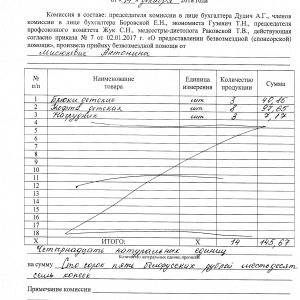 Комиссия в составе: председателя комиссии в лице бухгалтера Дудич А.Г., членов
комиссии в лице бухгалтера Боровской Е.Н., экономиста Гуневич Т.Н., председателя
профсоюзного комитета Жук С.Н., медсестры-диетолога Раковской Т.В., действующая
согласно приказа № 7 от 02.01.2017 г. «О предоставлении безвозмездной (спонсорской)
помощи», произвела приемку безвозмездной помощи от
Антонина
№ п/п Наименование товара Единица измерения Количество продукции Сумма
1 Брюки детские шт 3 40,86
2 Кофта детская шт 8 97,65
3 Нагрудник шт 3 7,17
4
5
6
7
8
9
10
11
12
13
14
15
16
17
18
X ИТОГО: X 14 145,67
Четырнадцать натуральных единиц
Количество натуральных единиц прописью
на сумму Сто сорок пять белорусских рублей шестьдесят
семь копеек
Примечания комиссии